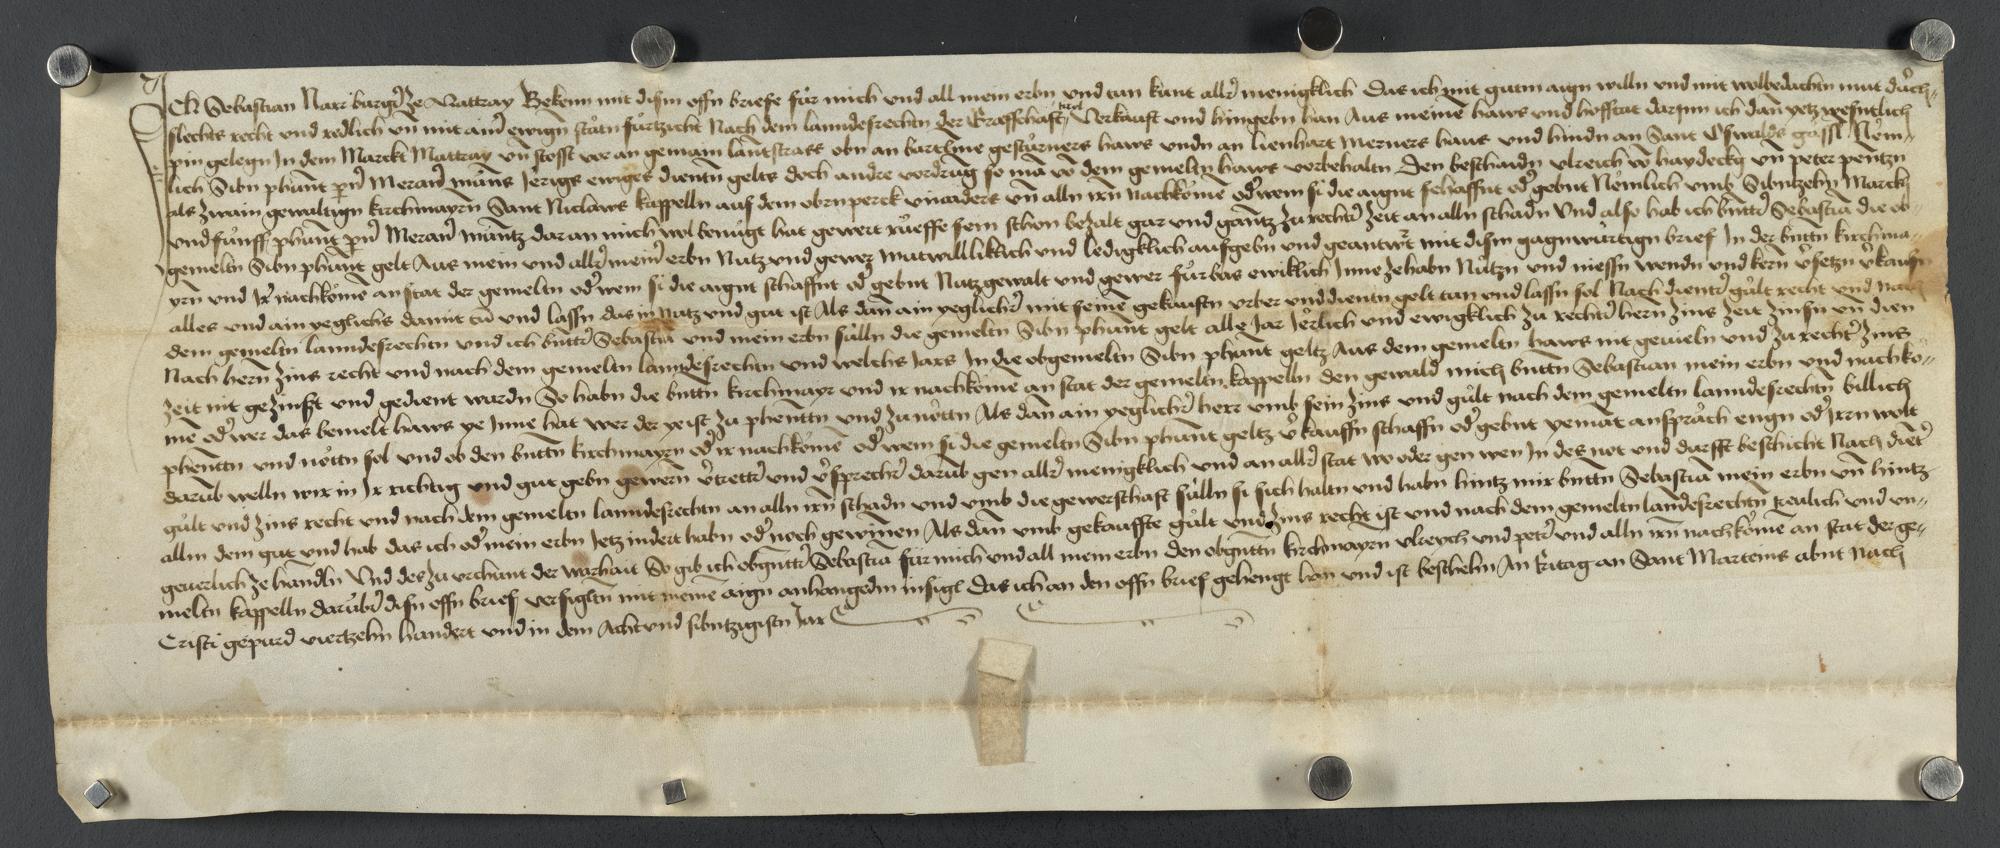 Ich Sebastian Narr burgr̄ ze Mattray Beken̄ mit dism offn briefe für mich und all mein erbn und tun kunt allr̄ menigklich Das ich mit gutm aign willn und mit wolbedachtn mut durch-
slechts recht und redlich un̄ mit aim̄ ewign stätn fürtzicht Nach dem lanndesrechtn der Graffschaft tirol Verkauft und hingebn han Aus meinē haws und hofstat darinn ich dan̄ yetz wesntlich
pin gelegn In dem Marckt Mattray un̄ stosst vor an gemain lantstrass obn an bartlme gestürners haws undn an lienhart Merners haus und hindn an Sant Oswalds gassl Näm-
lich Sibn phūnt pn̄r Meranr̄ münss Jerigs ewiges dientn̄ gelts doch andre vordrūg so mā vō dem gemeltn haws vorbehaltn Den beschaidn ulreich vō haydeckg un̄ peter pentzn
als zwain gewaltign kirchmayrn̄ Sant Niclaws kappelln auf dem obrn perck unnders un̄ alln irn̄ nachkomē od̄ wem si die aignt schaffnt od̄ gebnt Nemlich umb Sibntzehn Marck
und fünff phūnt pn̄r Meranr̄ müntz dar an mich wol benügt hat gewert rueffe sein schon bezalt gar und gantz zu rechtr̄ zeit an alln schadn Und also hab ich bnttr̄ Sebastiā die ob-
gemeltn Sibn phūnt gelt Aus mein und allr̄ meinr̄ erbn Nutz und gewer mutwillklich und ledigklich aufgebn und geantwrt mit dism gagnwürtign brief In der bnttn kirchma-
yrn und Ir̄ nachkomē an stat der gemeltn od̄ wem si die aignt schaffnt od̄ gebnt Nutz gewalt und gewer fürbas ewiklich Inne zehabn Nutzn und niessn wendn und kern̄ v̄setzn v̄kaufn
alles und ain yeglichs damit tūn und lassn das in nutz und gut ist Als dan̄ ain yeglichr̄ mit seinē gekauftn urber und dientn gelt tun und lassn sol Nach dientr̄ gült recht und nach
dem gemeltn lanndesrechtn und ich bnttr̄ Sebastiā und mein erbn sülln die gemeltn Sibn phūnt gelt alle Jar Jerlich und ewigklich zu rechtr̄ hern̄ zins zeit zinsn un̄ dien
Nach hern̄ zins recht und nach dem gemeltn lanndesrechtn und welchs Jars In die obgemeltn Sibn phūnt geltz Aus dem gemeltn haws nit geuieln und zu rechtr̄ zins
zeit nit gezinsst und gedient wurdn So habn die bnttn kirchmayr und ir nachkomē an stat der gemeltn kappelln den gewald mich bnttn Sebastian mein erbn und nachko-
mē od̄ wer das bemelt haws ye Inne hat wer der ye ist zu phenttn und zu nottn Als dan̄ ain yeglichr̄ herr umb sein zins und gült nach dem gemeltn lanndesrechtn billich
phenttn und nottn sol und ob den bnttn kirchmayrn od̄ ir nachkomē od̄ wem si die gemeltn Sibn phūnt geltz v̄kauffn schaffn od̄ gebnt yemāt ansprach engn od̄ Irrn wolt
darūb welln wir in Ir richtig und gut gebn gewern̄ v̄trettr̄ und v̄sprechr̄ darūb gen allr̄ menigklich und an allr̄ stat wo oder gen wen In des not und darfft beschicht Nach diētr̄
gült und zins recht und nach dem gemeltn lanndesrechtn an alln irn̄ schadn und umb die gewerschaft sülln si sich haltn und habn hintz mir bnttn Sebastiā mein erbn un̄ hintz
allm dem gut und hab das ich od̄ mein erbn Jetz indert habn od̄ noch gewinen Als dan̄ umb gekauffte gült und zins recht ist und nach dem gemeltn landesrechtn treulich und un-
geuerlich ze handln Und des zu urchunt der warhait So gib ich obgnttr̄ Sebastiā für mich und all mein erbn den obgnttn kirchmayrn ulreych und petr̄ und alln irn̄ nachkomē an stat der ge-
meltn kappelln darübr̄ disn offn brief versigltn mit meinē aign anhangedm insigl Das ich an den offn brief gehengt han und ist beschehn An fritag an Sant Marteins abnt Nach
Cristi gepurd viertzehn hundert und in dem Acht und sibntzigistn Jar